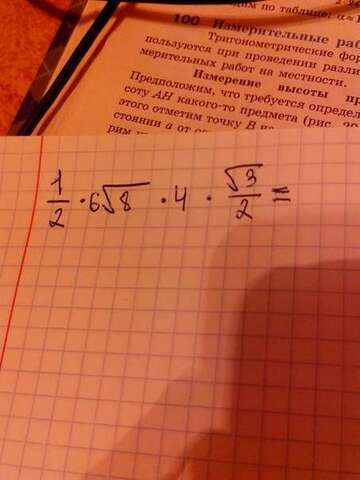 дим по таблице:
100 Измерительные ра
Тригонометрические фор
пользуются при проведении разли
мерительных работ на местности.
Измерение высоты пр
Предположим, что требуется определ
соту AH какого-то предмета (рис.
этого отметим точку B на
стоянии a от
рим
1/2 · 6√8 · 4 · √3/2 =